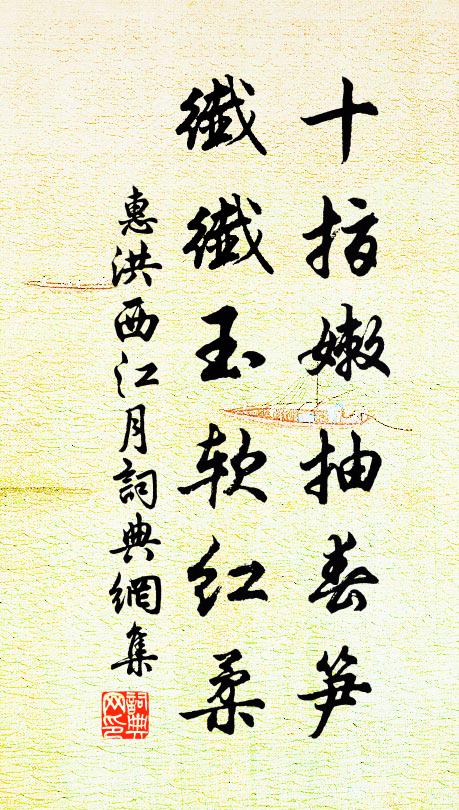 十指嫩抽春笋
纖纖玉软红柔
惠洪西江月詞典網集
詞典网印